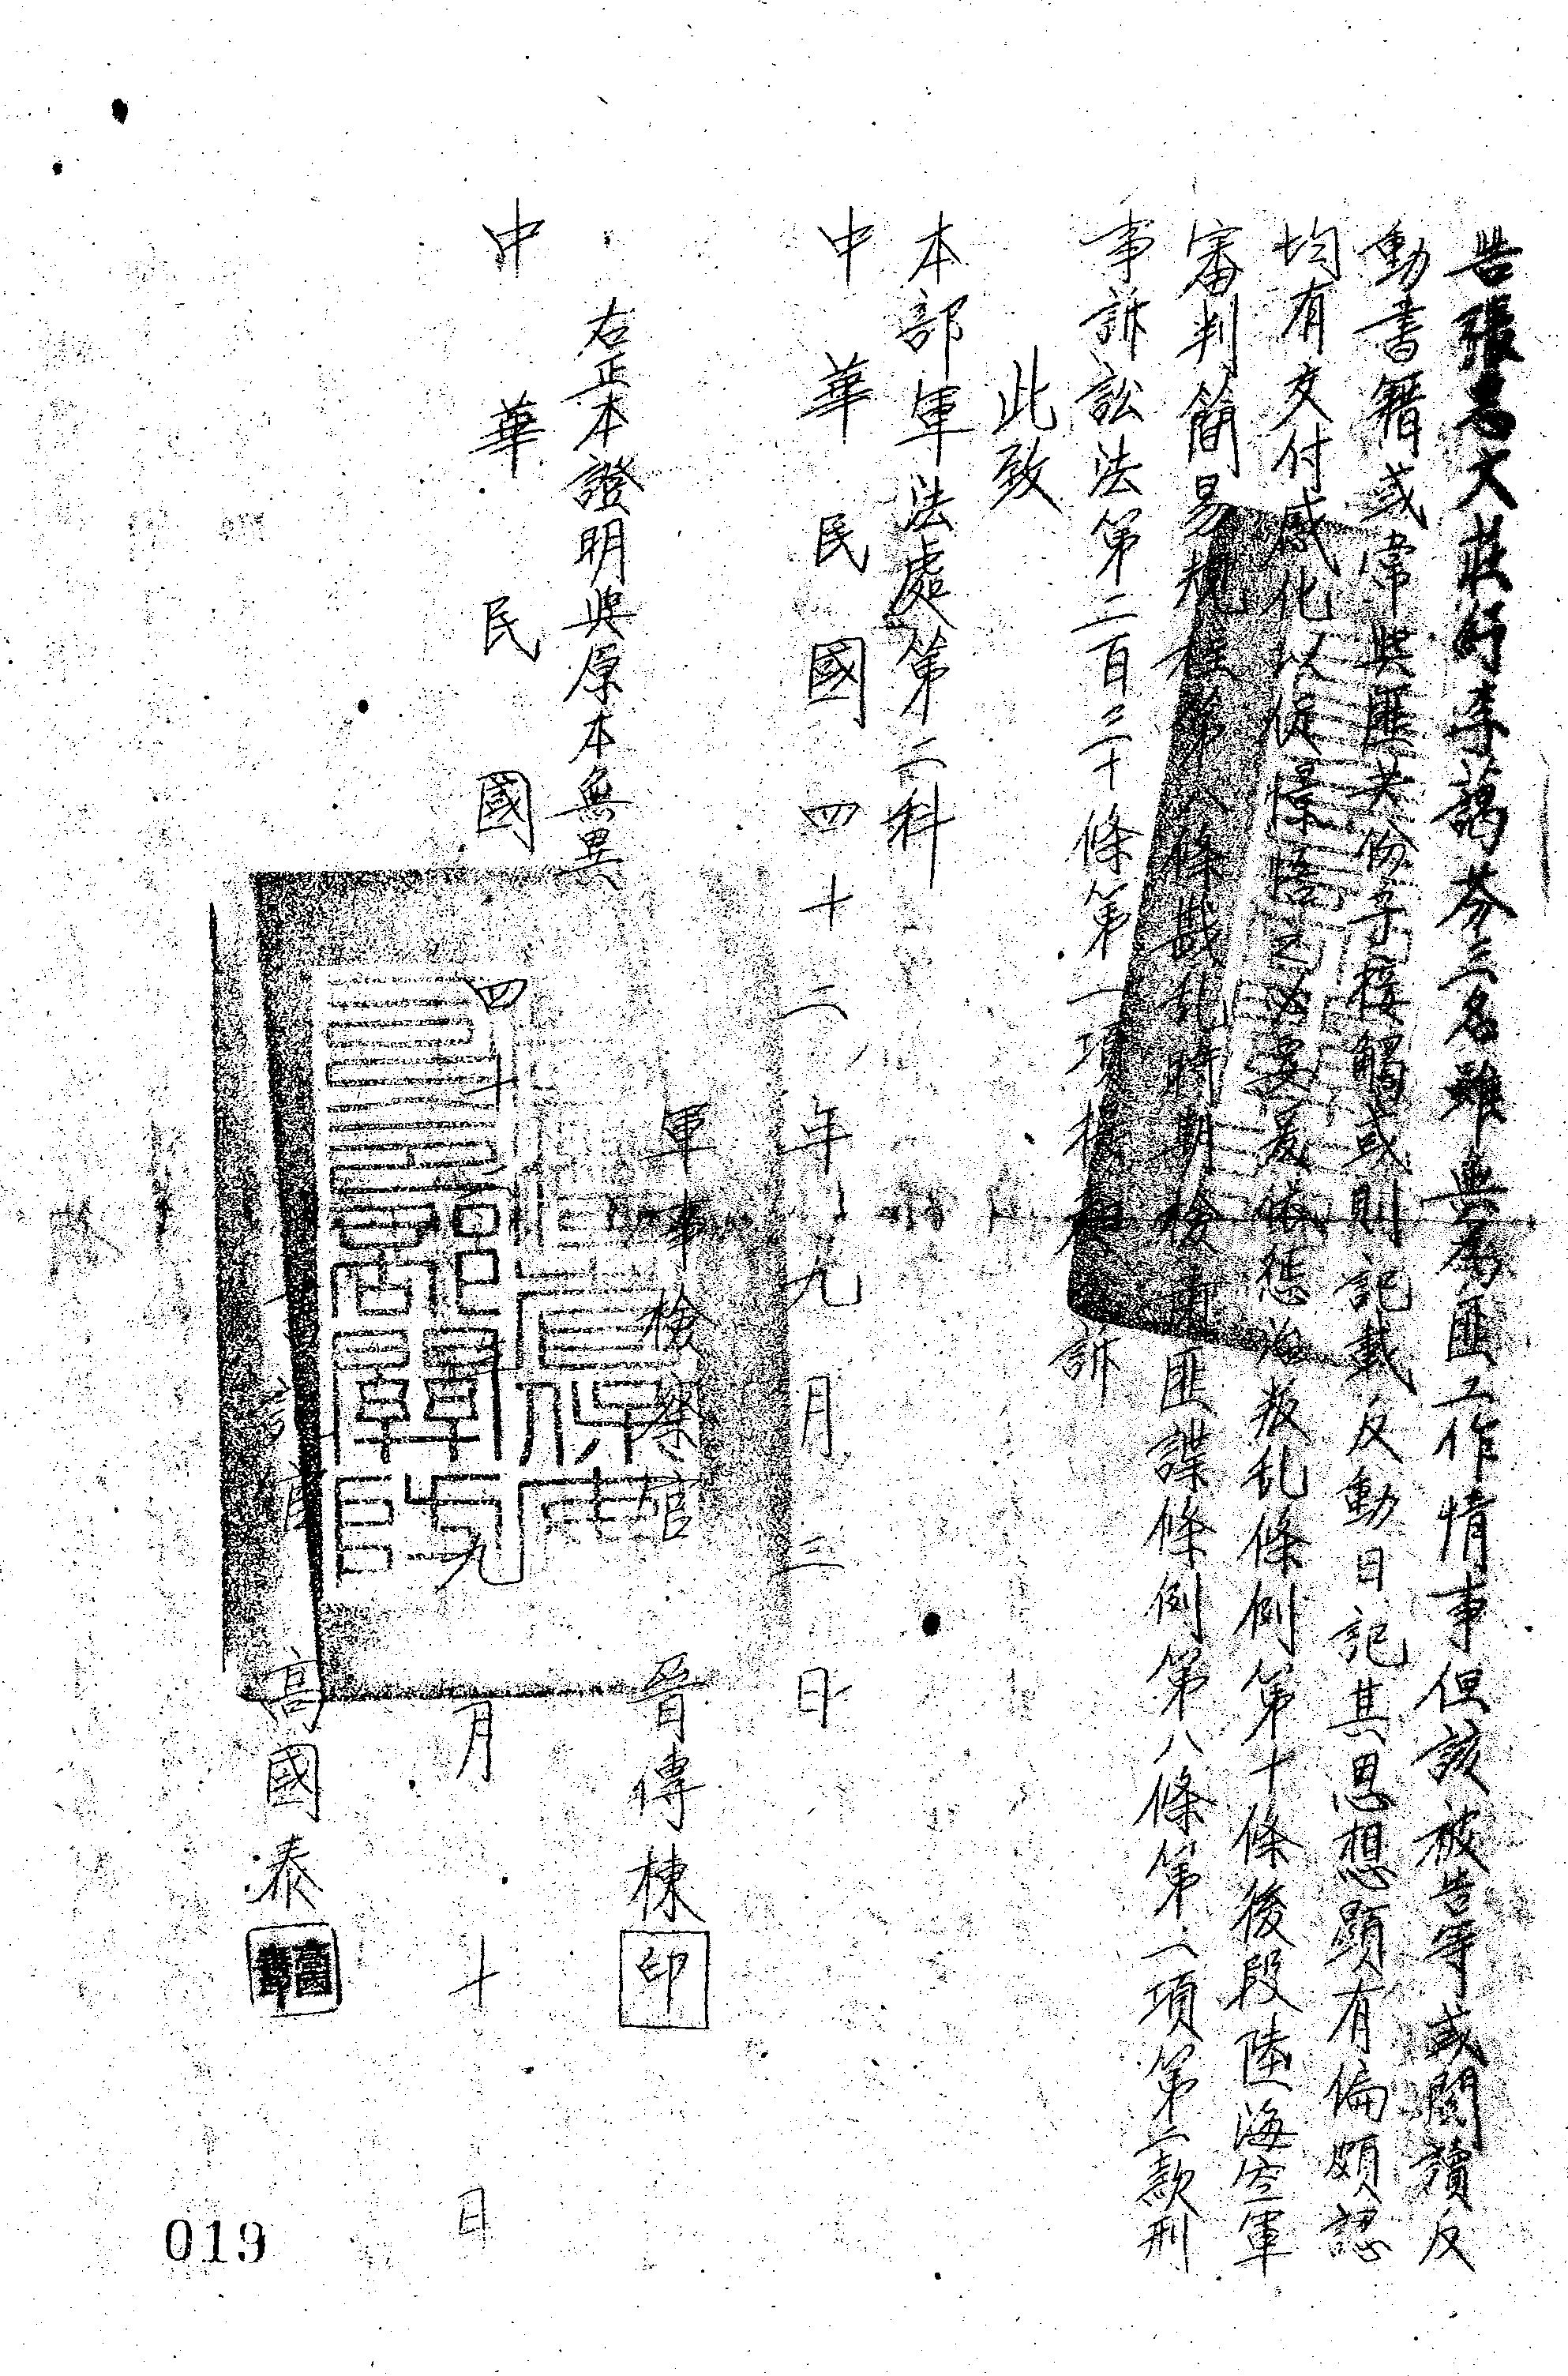 告張君文莊行李蕅芬三名雖無為匪工作情事但該被告等或閱讀反
動書籍或常與匪共份子接觸或則記載反動日記其思想顯有偏頗認
均有交付感化以促憬悟之必要爰依懲治叛乱條例第十條後段陸海空軍
審判簡易規程第八條戡乱時期檢肅匪諜條例第八條第一項第二款刑
事訴訟法第二百三十條第一項提起訴
此致
本部軍法處第二科
中華民國四十二年九月三日
軍事檢察官 晉傳棟 印
右正本證明與原本無異
中華民國四十 九月十日
高國泰
019